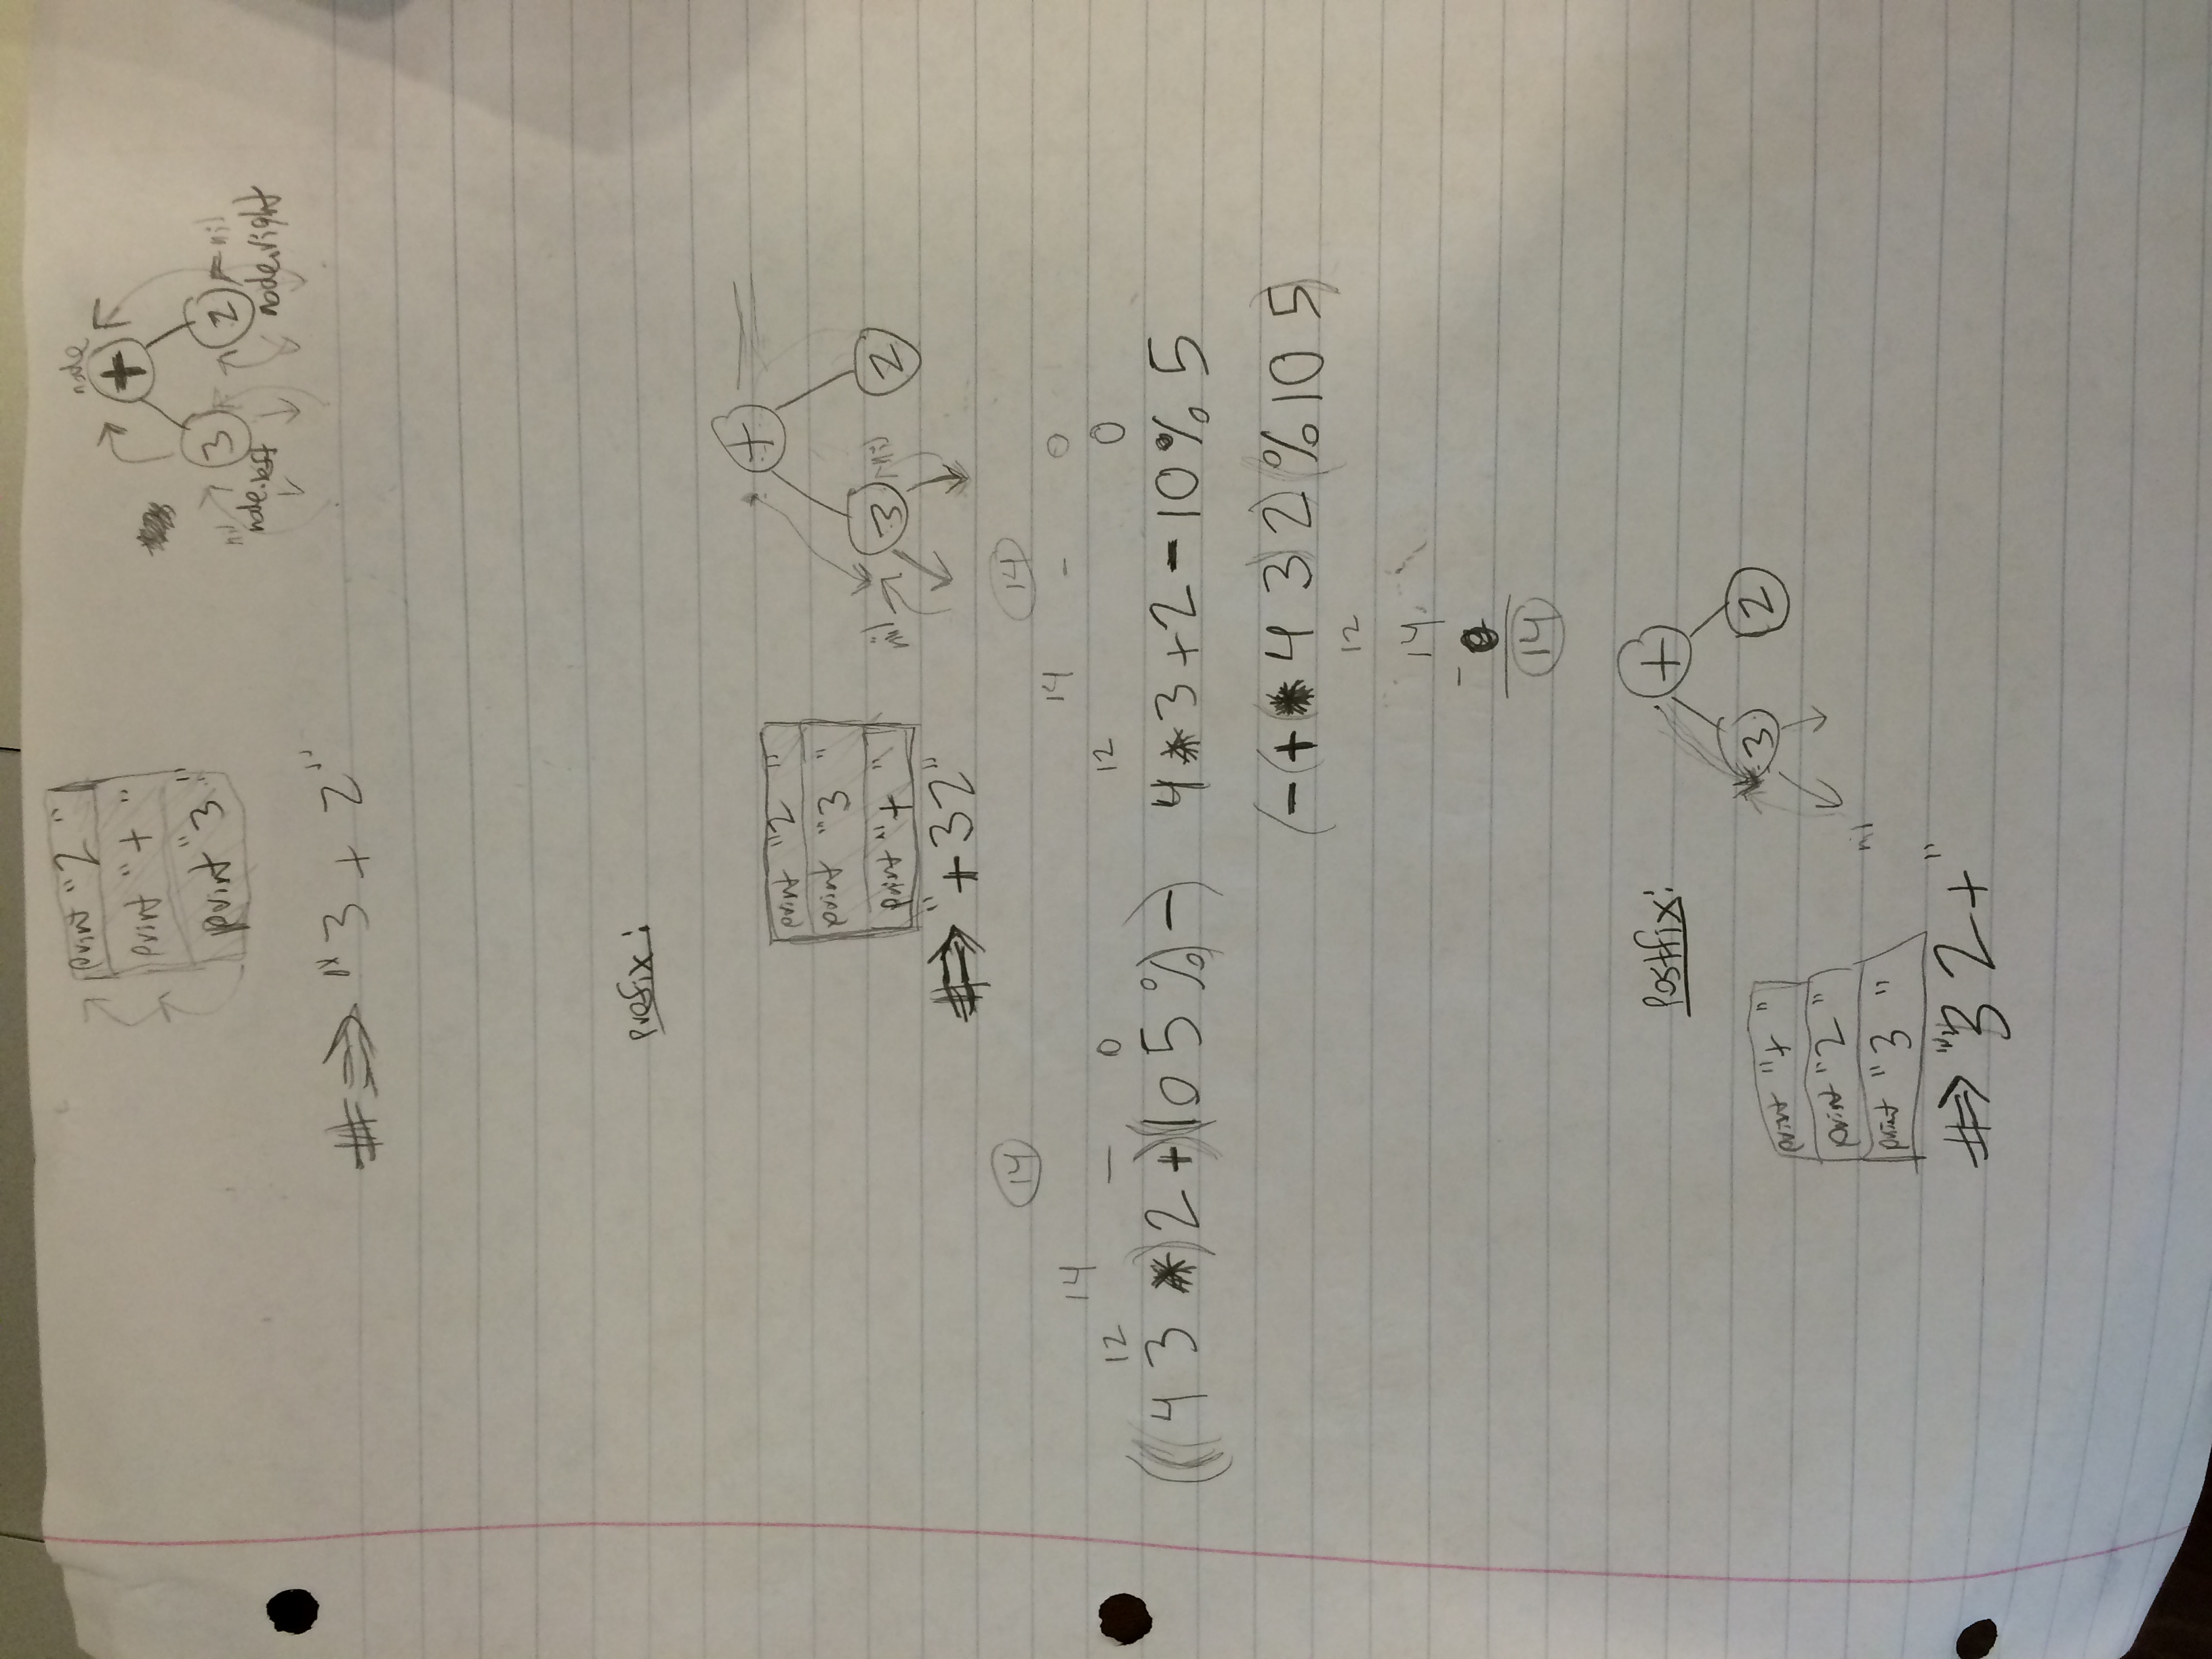 print "2 "
print "+ "
print "3 "
node
+
3
2
nil
nil
node.left
node.right
#=> "3 + 2"
Prefix:
print "2 "
print "3 "
print "+ "
+
3
2
nil
nil
#=> "+32"
14
14
14 - 0
12 - 0
12 0
(((4 3 *) 2 +)(10 5 %) -)
4 * 3 + 2 - 10 % 5
(-(+(* 4 3) 2)(% 10 5)
12
14
- 0
14
Postfix:
+
3
2
nil
print "+ "
print "2 "
print "3 "
#=> "3 2 +"